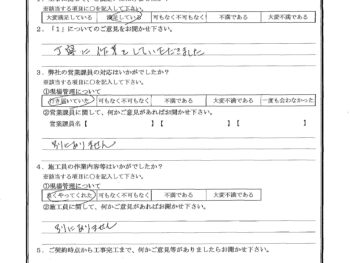 ※該当する項目に○を記入して下さい。
大変満足している 満足している 可も無く不可も無く 不満である 大変不満である
2．「1」についてのご意見をお聞かせ下さい。
丁寧に作業をしていただきました
3．弊社の営業課員の対応はいかがでしたか？
※該当する項目に○を記入して下さい。
①現場管理について
行き届いていた 可もなく不可もなく 不満である 大変不満である 一度も会わなかった
②営業課員に関して、何かご意見があればお聞かせ下さい。
営業課員名【 】【 】【 】
別にありません
4．施工員の作業内容等はいかがでしたか？
※該当する項目に○を記入して下さい。
①現場管理について
良くやってくれた 可もなく不可もなく 不満である 大変不満である
②施工員に関して、何かご意見があればお聞かせ下さい。
別にありません
5．ご契約時点から工事完工まで、何かご意見等がありましたらお聞かせ下さい。